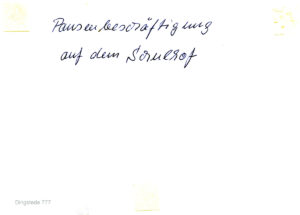 Pausenbeschäftigung
auf dem Schulhof
Dingstede ???